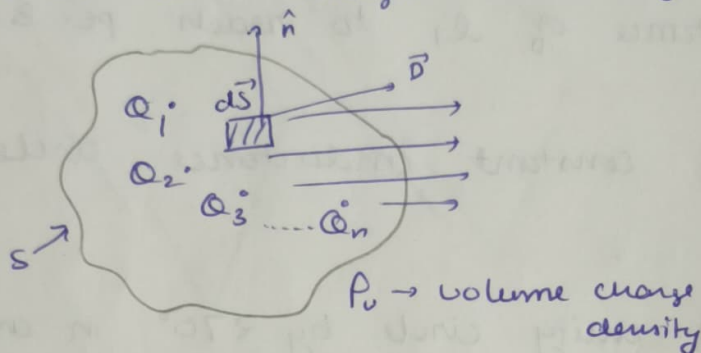 n̂
D⃗
Q₁
dS⃗
Q₂
Q₃ ..... Qₙ
S
ρᵥ → volume charge
density